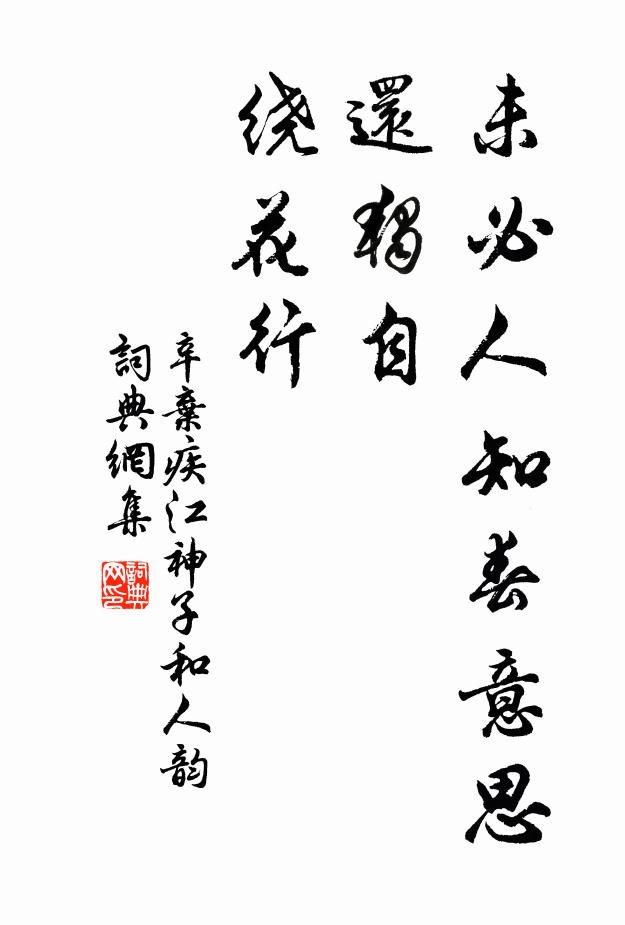 未必人知春意思
還獨自
绕花行
辛棄疾江神子和人韵
詞典網集
詞典网印